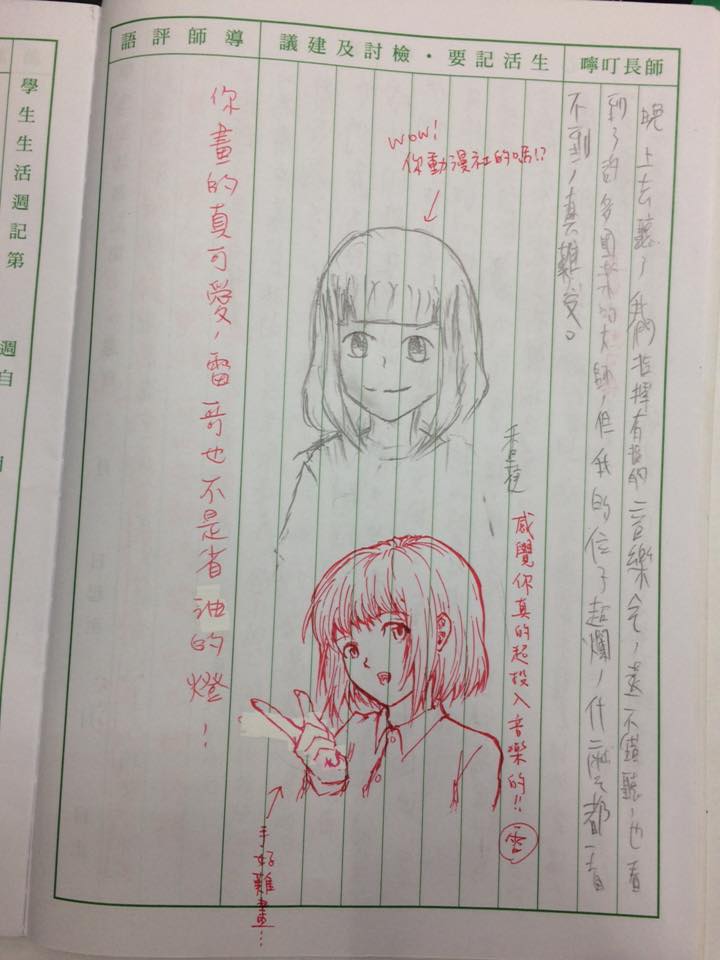 師長叮嚀
生活記要・檢討及建議
導師評語
學生生活週記第　週　自
晚上去聽了我們指揮有指的音樂會，蠻不錯聽，也看
到了許多國樂的大師，但我的位子超爛，什麼都看
不到，真難受。
wow!
你動漫社的嗎!?
感覺你真的超投入音樂的!! 雷
手好難畫…
你畫的真可愛，雷哥也不是省油的燈！